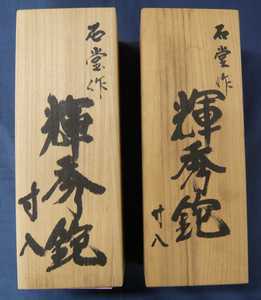 石堂作
輝秀鉋
寸八
石堂作
輝秀鉋
寸八